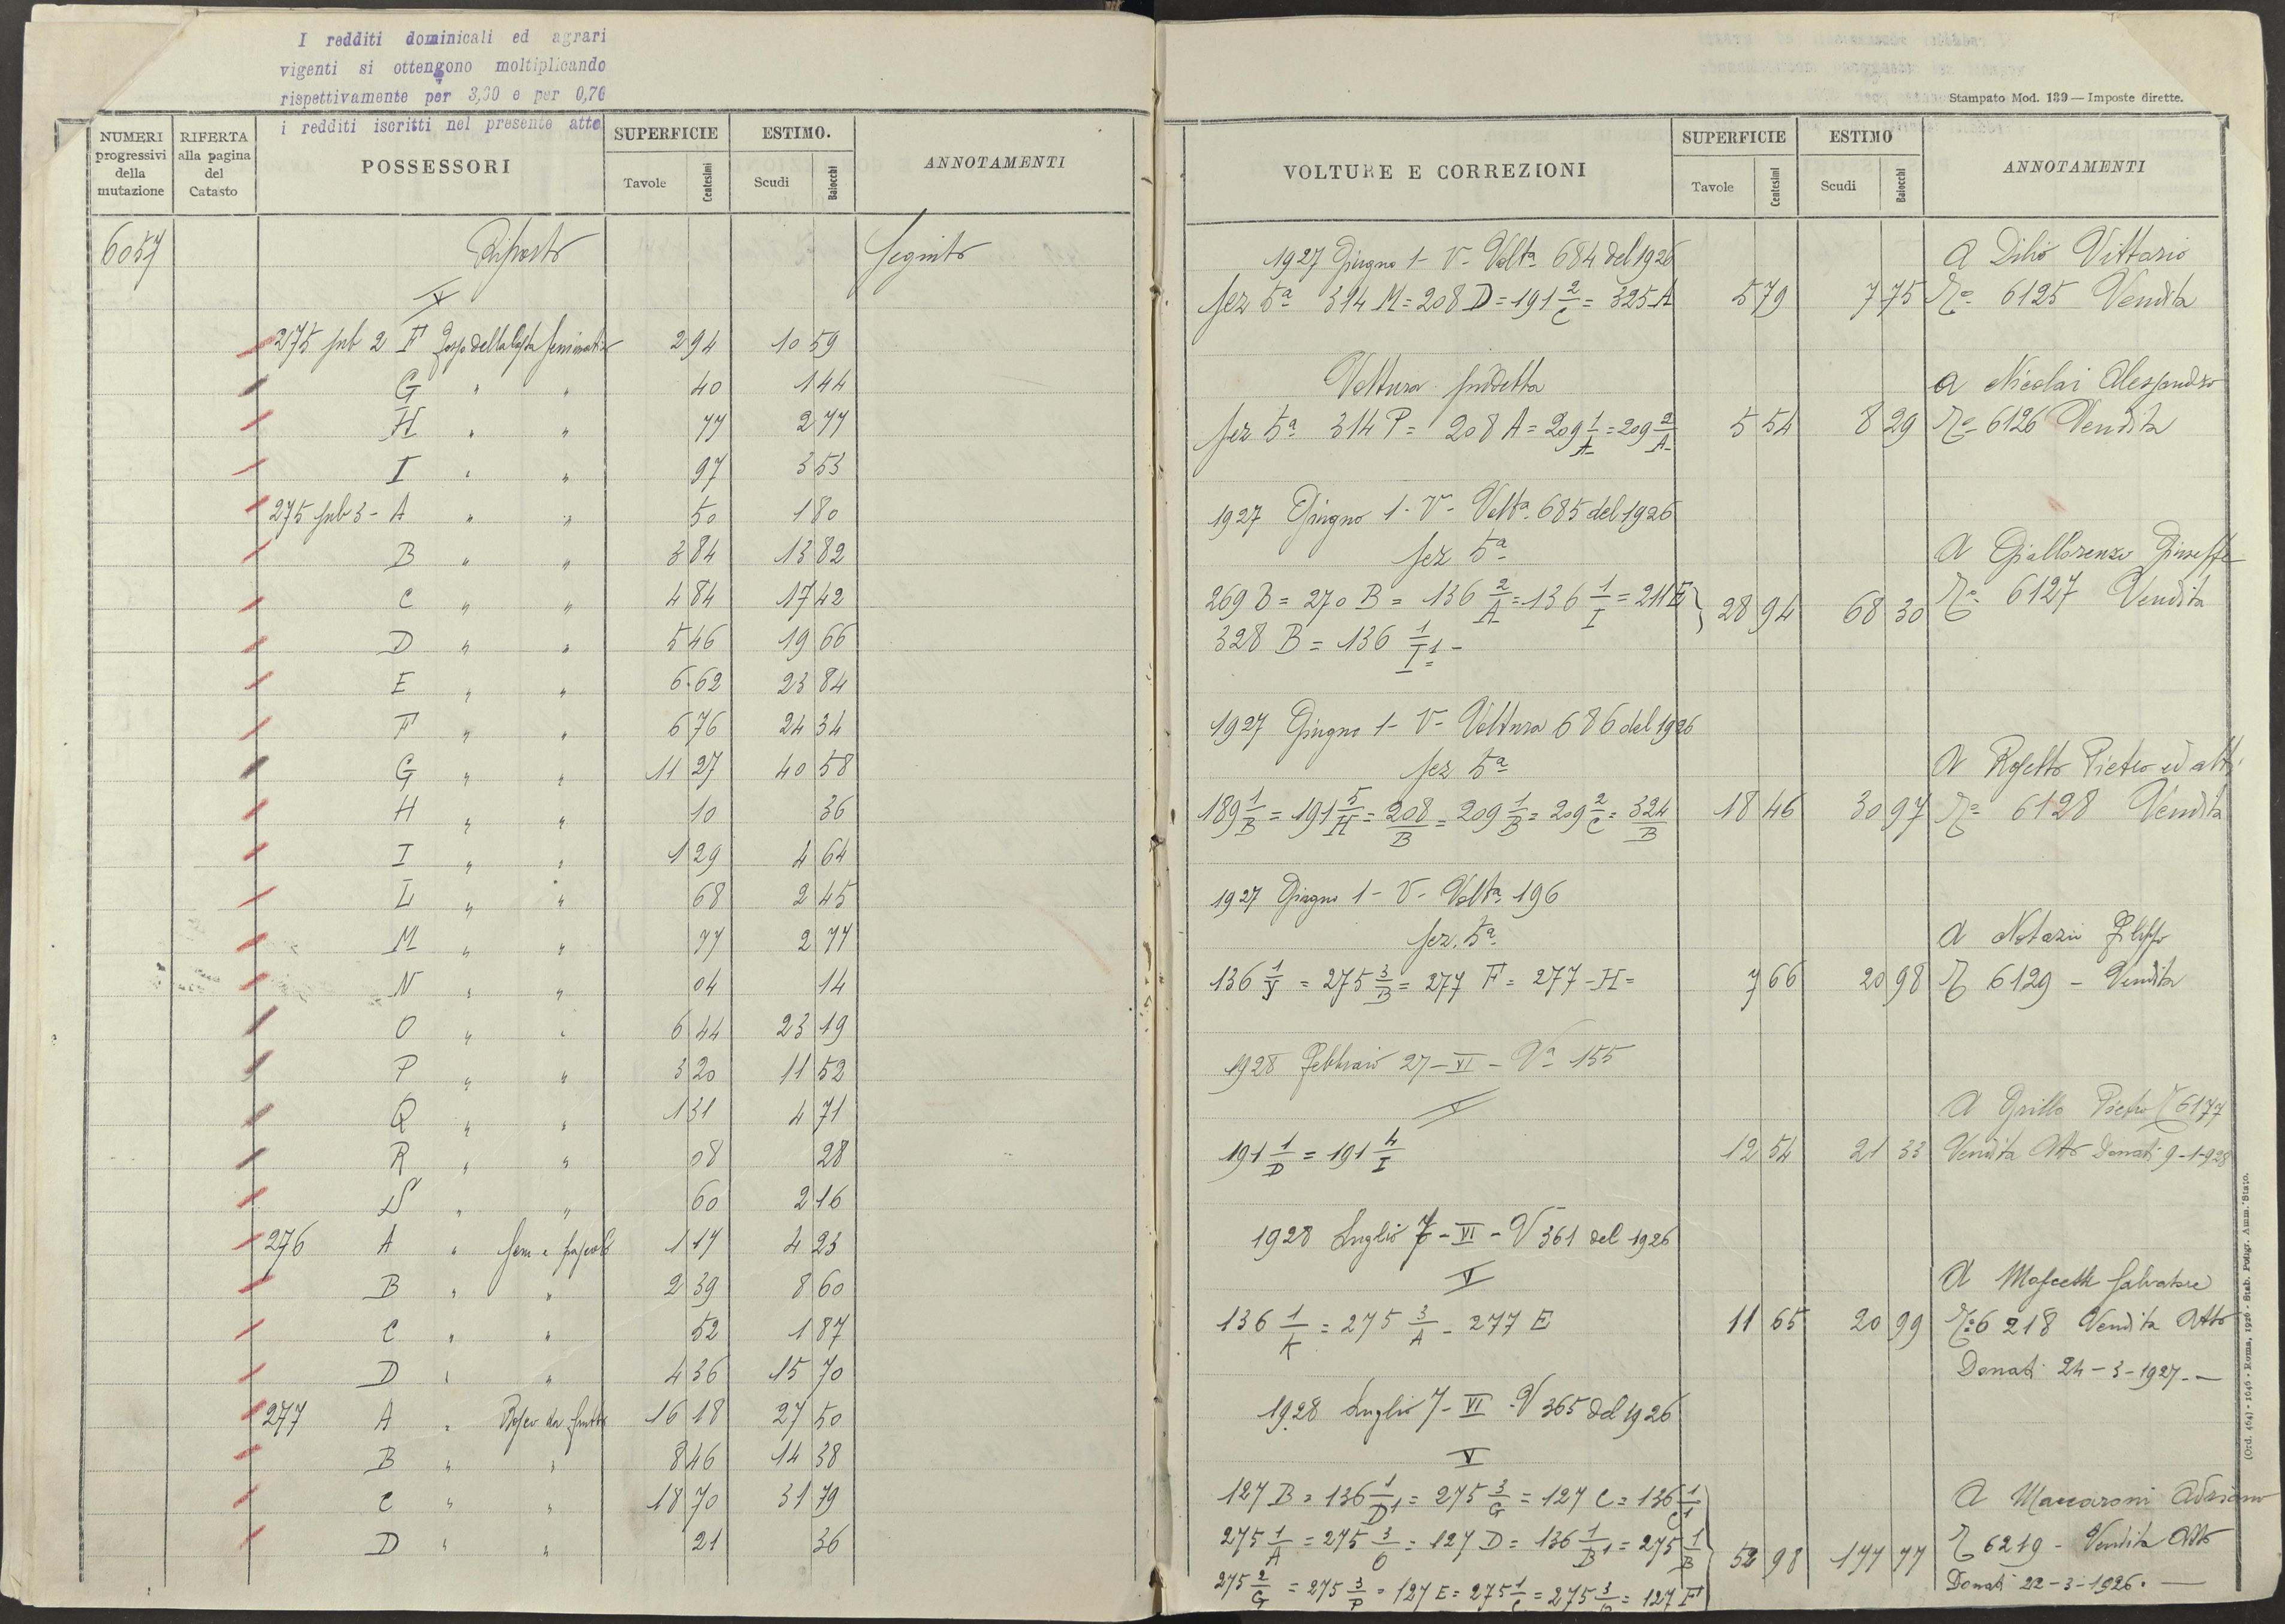 I redditi dominicali ed agrari
vigenti si ottengono moltiplicando
rispettivamente per 3,30 e per 0,76
i redditi iscritti nel presente atto
NUMERI progressivi della mutazione
RIFERTA alla pagina del Catasto
POSSESSORI
SUPERFICIE Tavole Centesimi
ESTIMO. Scudi Baiocchi
ANNOTAMENTI
6057 Riporto Seguito
V
275 sub 2 F Seminativo 2 94 10 59
G " " 40 1 44
H " " 77 2 77
I " " 97 3 53
275 sub 3 - A " " 50 1 80
B " " 3 84 13 82
C " " 4 84 17 42
D " " 5 46 19 66
E " " 6 62 23 84
F " " 6 76 24 34
G " " 11 27 40 58
H " " 10 36
I " " 1 29 4 64
L " " 68 2 45
M " " 77 2 77
N " " 04 14
O " " 6 44 23 19
P " " 3 20 11 52
Q " " 1 31 4 71
R " " 08 28
S " " 60 2 16
276 A " Sem e pascolo 1 17 4 23
B " " 2 39 8 60
C " " 52 1 87
D " " 4 36 15 70
277 A " Bosco da frutto 16 18 27 50
B " " 8 46 14 38
C " " 18 70 31 79
D " " 21 36
Stampato Mod. 139 — Imposte dirette.
VOLTURE E CORREZIONI
SUPERFICIE Tavole Centesimi
ESTIMO Scudi Baiocchi
ANNOTAMENTI
1927 Giugno 1 - V - Volta 684 del 1926 A Vittorio
Sez 5a 314 M = 208 D = 191 2/C = 325 A 5 79 7 75 No 6125 Vendita
Voltura suddetta a Nicolai Alessandro
Sez 5a 314 P = 208 A = 209 1/A = 209 2/A 5 54 8 29 No 6126 Vendita
1927 Giugno 1 - V - Volta 685 del 1926
Sez 5a A Giallorenzo Giuseppe
269 B = 270 B = 136 2/A = 136 1/I = 211 E 28 94 68 30 No 6127 Vendita
328 B = 136 1/I1 -
1927 Giugno 1 - V - Voltura 686 del 1926
Sez 5a A Rosetto Pietro ed altri
189 1/B = 191 5/H = 208/B = 209 1/B = 209 2/C = 324/B 18 46 30 97 No 6128 Vendita
1927 Giugno 1 - V - Volta 196
Sez. 5a A Notazio Filippo
136 1/J = 275 3/B = 277 F = 277 - H = 7 66 20 98 6129 - Vendita
1928 Febbraio 27 - VI - Va 155
V A Grillo Pietro 6177
191 1/D = 191 4/I 12 54 21 33 Vendita Atto Donati 9-1-928
1928 Luglio 7 - VI - V 361 del 1926
V A Mascetti Salvatore
136 1/K = 275 3/A - 277 E 11 65 20 99 No 6218 Vendita Atto
Donati 24-3-1927. —
1928 Luglio 7 - VI - V 365 del 1926
V
127 B = 136 1/D1 = 275 3/G = 127 C = 136 1/C1 A Maccaroni Adriano
275 1/A = 275 3/O = 127 D = 136 1/B1 = 275 1/B 52 98 177 77 6219 - Vendita Atto
275 2/G = 275 3/P = 127 E = 275 1/C = 275 3/ = 127 F Donati 22-3-1926. —
(Ord. 464) - 1046 - Roma, 1926 - Stab. Poligr. Amm. Stato.